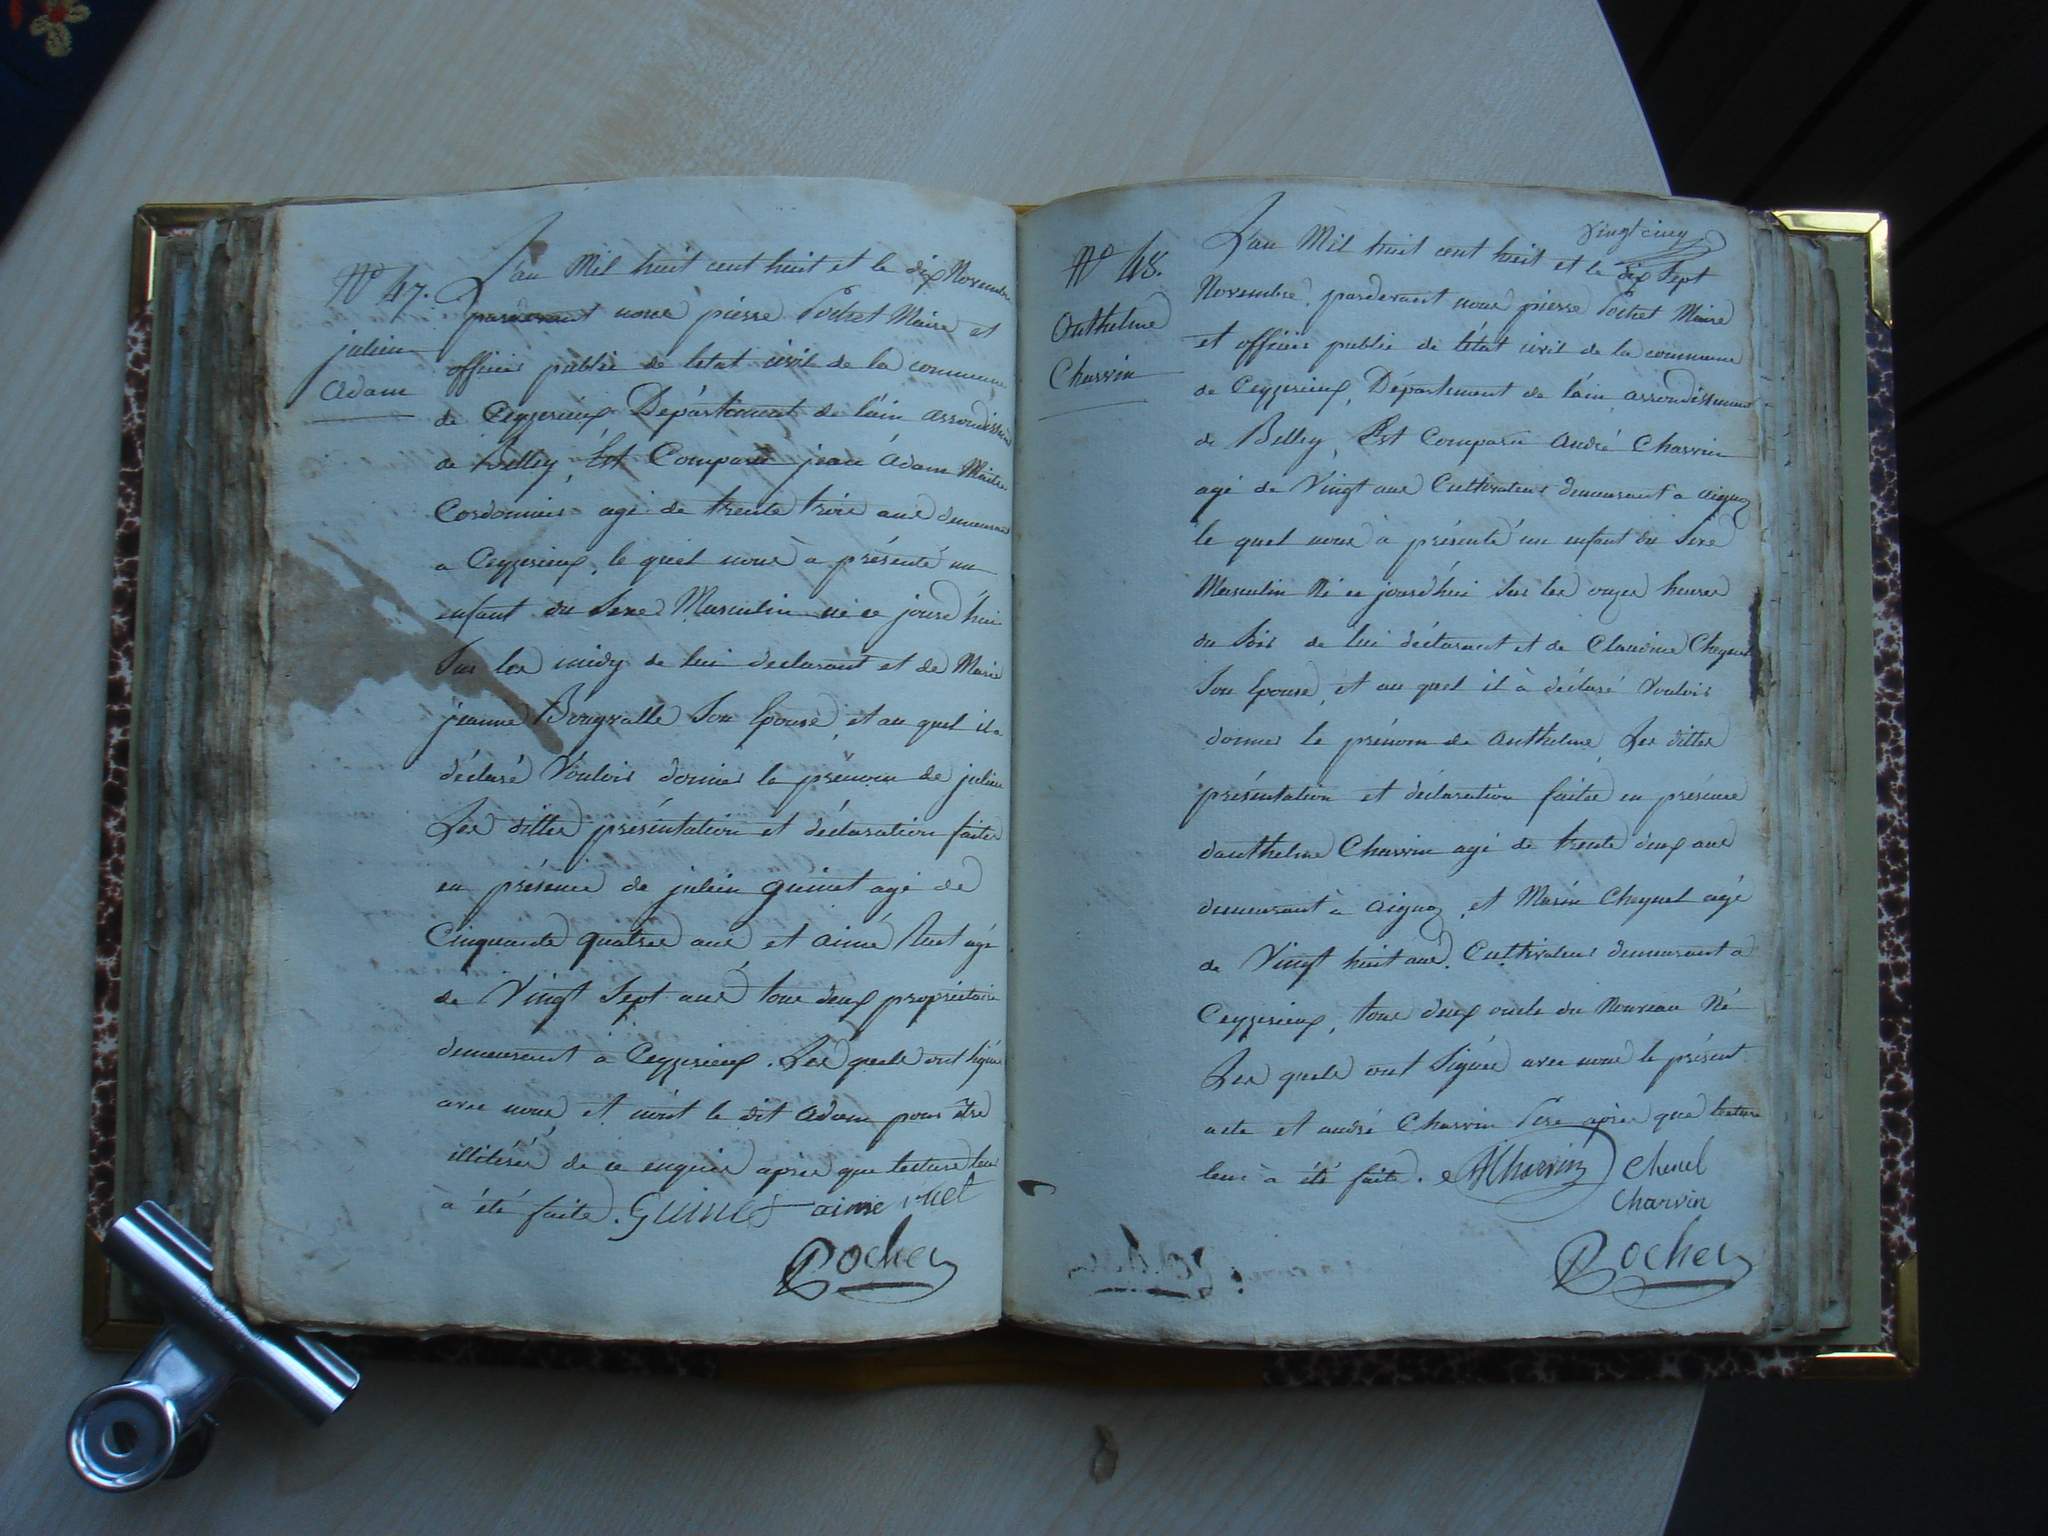 N° 47.
julien
Adam
L'an Mil huit cent huit et le dix Novembre
pardevant nous pierre Pochet Maire et
officier public de l'état civil de la commune
de Ceyzerieux Département de l'ain arrondissem
de Belley, Est Comparu jean Adam Maitre
Cordonnier agé de trente trois ans demeurant
a Ceyzerieux, le quel nous a présenté un
enfant du Sexe Masculin né ce jourd'hui
Sur les midy de lui déclarant et de Marie
jeanne Son Epouse, et au quel il a
déclaré Vouloir donner le prénom de julien
Les dittes présentation et déclaration faites
en présence de julien guinet agé de
Cinquante quatre ans et aimé agé
de Vingt Sept ans tous deux propriétaire
demeurant à Ceyzerieux. Les quels ont signé
avec nous et non le dit Adam pour être
illitéré de ce enquis après que lecture leur
a été faite. GUINET aimé
Pochet
vingt cinq
N° 48.
Anthelme
Charvin
L'an Mil huit cent huit et le dix Sept
Novembre, pardevant nous pierre Pochet Maire
et officier public de l'état civil de la commune
de Ceyzerieux, Département de l'ain, arrondissement
de Belley, Est Comparu André Charvin
agé de Vingt ans Cultivateur demeurant a aignoz
le quel nous à présenté un enfant du Sexe
Masculin Né ce jourd'hui Sur les onzes heures
du Soir de lui déclarant et de Claudine Cheynel
Son Epouse, et au quel il à déclaré Vouloir
donner le prénom de Anthelme, Les dittes
présentation et déclaration faites en présence
d'anthelme Charvin agé de trente deux ans
demeurant à aignoz, et Marin Cheynel agé
de Vingt huit ans. Cultivateur demeurant a
Ceyzerieux, tous deux oncle du Nouveau Né
Les quels ont Signés avec nous le présent
acte et andré Charvin Père après que lecture
leur à été faite. Charvin Chenel
Charvin
Pochet